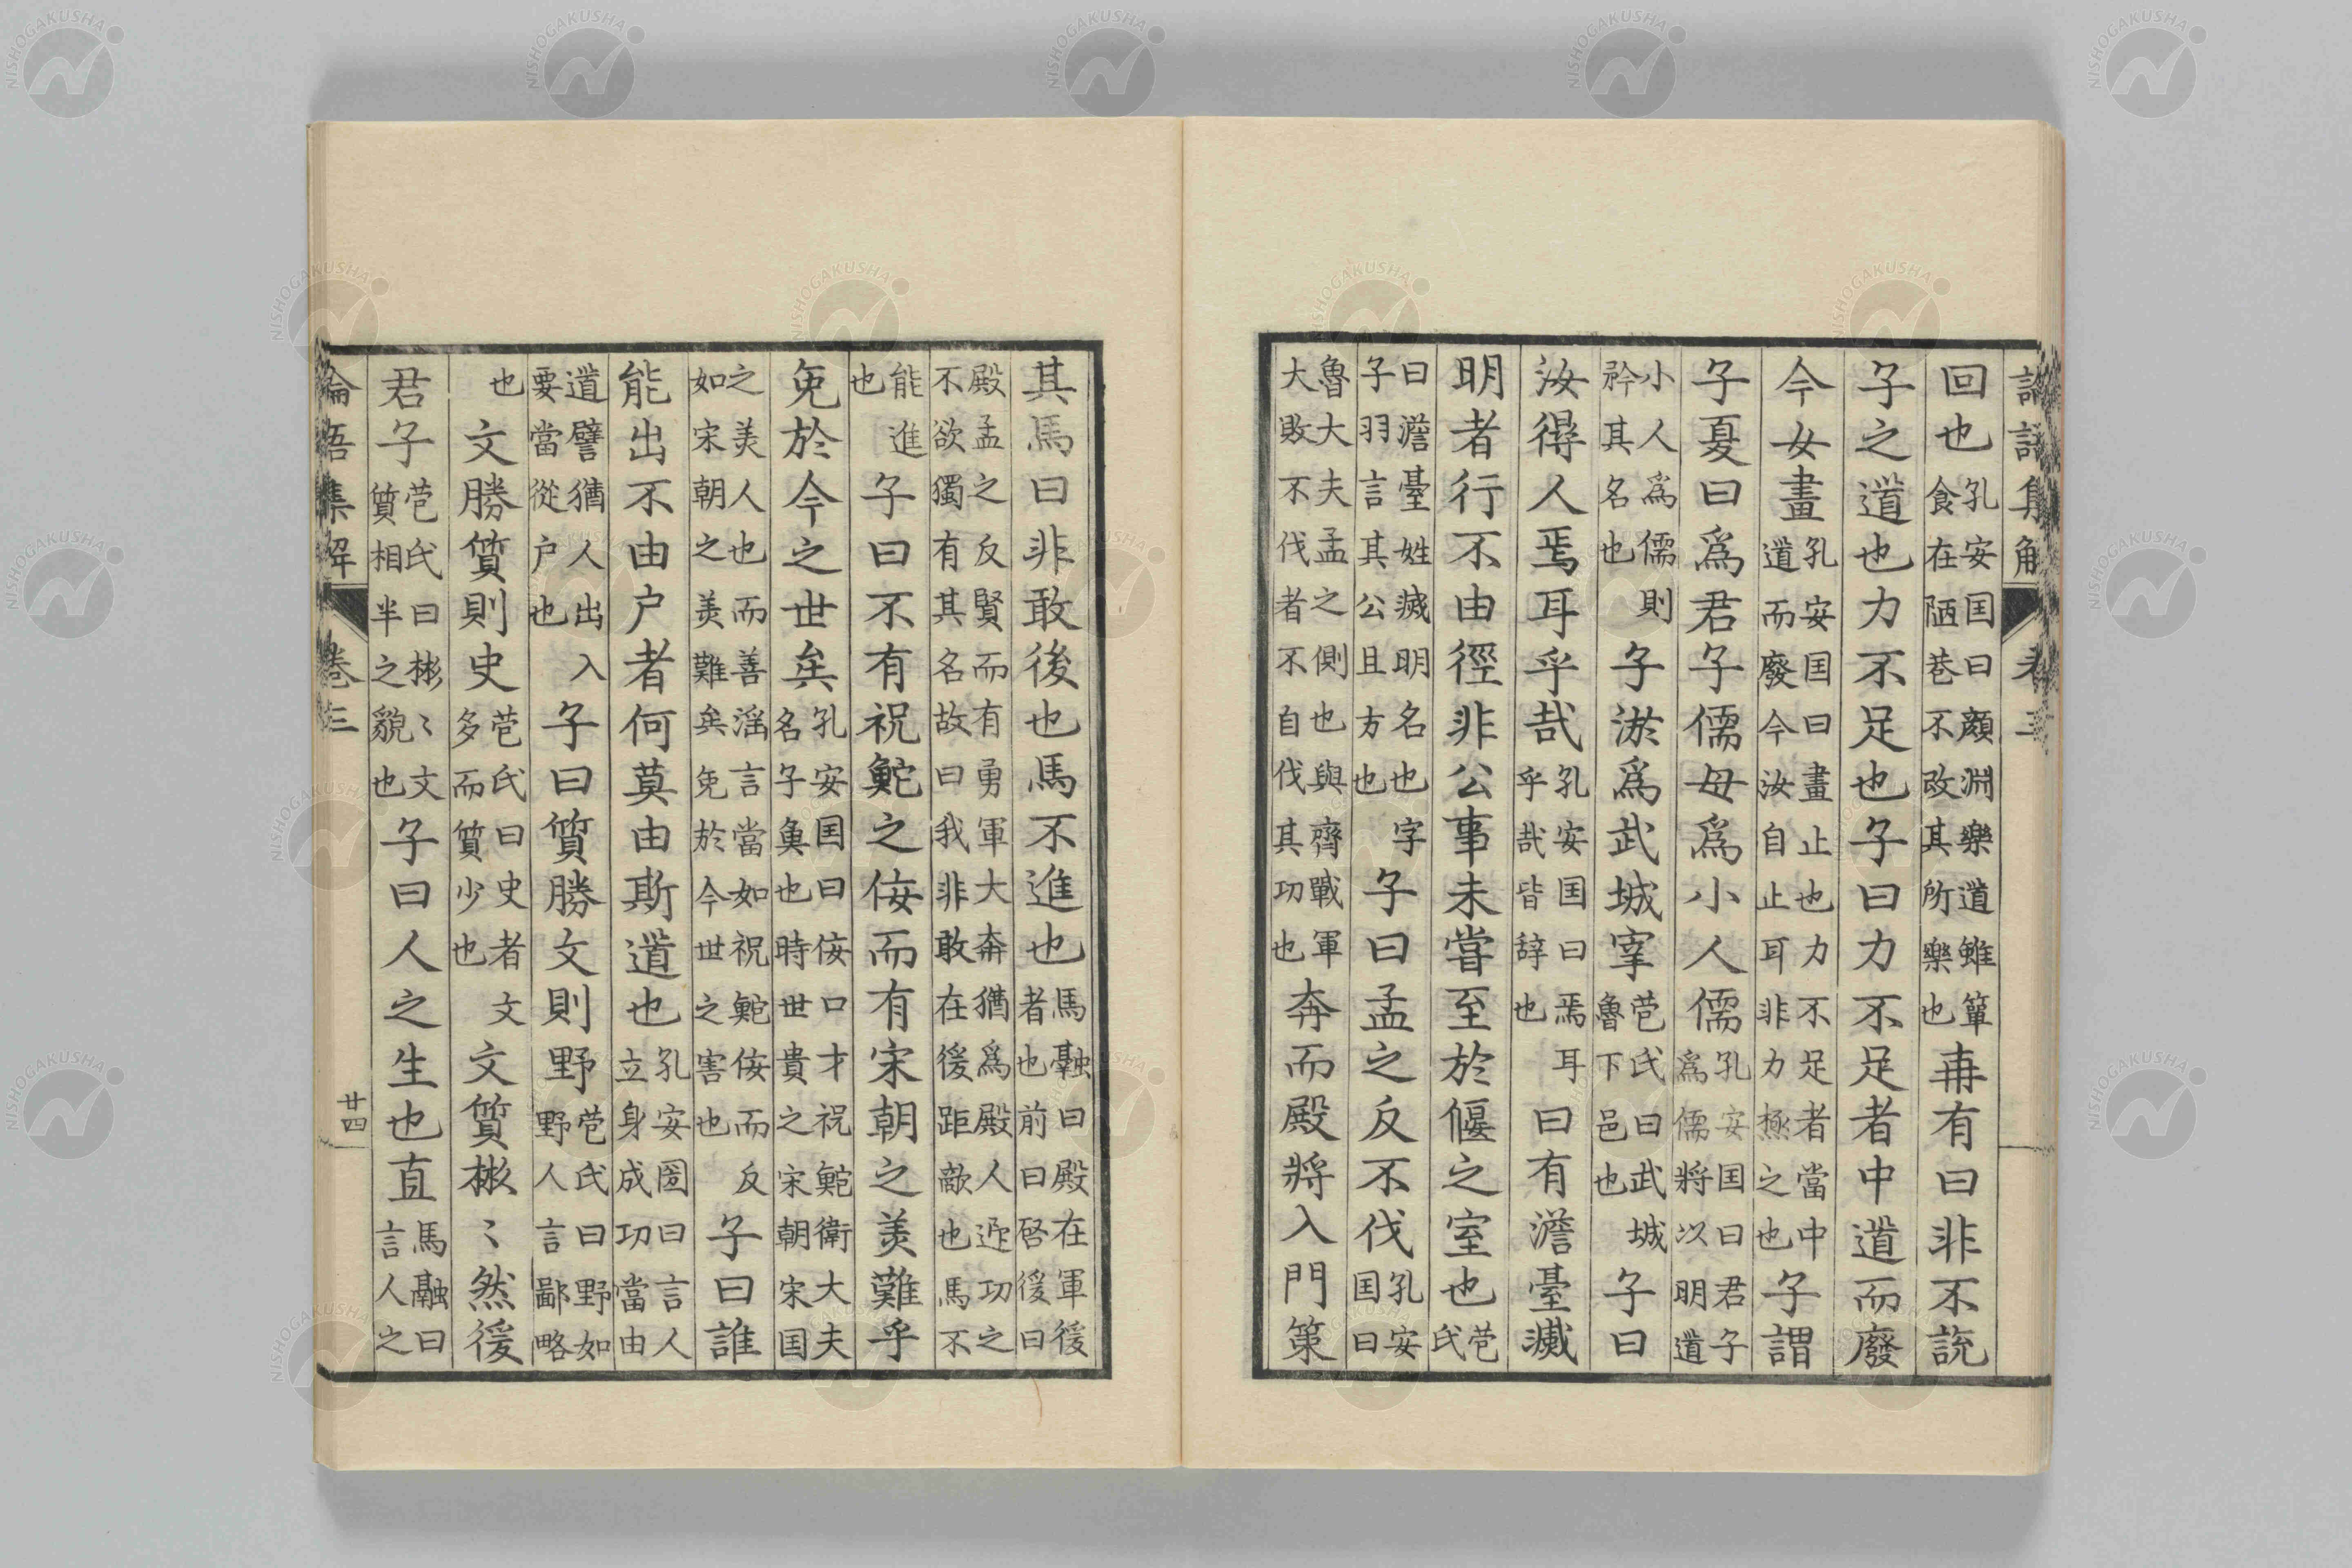 論語集解 卷三
回也孔安国曰顔淵樂道雖簞食在陋巷不改其所樂也冉有曰非不説
子之道也力不足也子曰力不足者中道而廢
今女畫孔安国曰畫止也力不足者當中道而廢今汝自止耳非力極之也子謂
子夏曰爲君子儒毋爲小人儒孔安国曰君子爲儒將以明道
小人爲儒則矜其名也子游爲武城宰苞氏曰武城魯下邑也子曰
汝得人焉耳乎哉孔安国曰焉耳乎哉皆辞也曰有澹臺滅
明者行不由徑非公事未嘗至於偃之室也苞氏
曰澹臺姓滅明名也字子羽言其公且方也子曰孟之反不伐孔安国曰
魯大夫孟之側也與齊戰軍大敗不伐者不自伐其功也奔而殿將入門策
其馬曰非敢後也馬不進也馬融曰殿在軍後者也前曰啓後曰
殿孟之反賢而有勇軍大奔猶爲殿人迎功之不欲獨有其名故曰我非敢在後距敵也馬不
能進也子曰不有祝鮀之佞而有宋朝之美難乎
免於今之世矣孔安国曰佞口才祝鮀衛大夫名子魚也時世貴之宋朝宋国
之美人也而善淫言當如祝鮀佞而反如宋朝之美難矣免於今世之害也子曰誰
能出不由户者何莫由斯道也孔安国曰言人立身成功當由
道譬猶人出入要當從户也子曰質勝文則野苞氏曰野如野人言鄙略
也文勝質則史苞氏曰史者文多而質少也文質彬〻然後
君子苞氏曰彬〻文質相半之貌也子曰人之生也直馬融曰言人之
論語集解 卷三 廿四